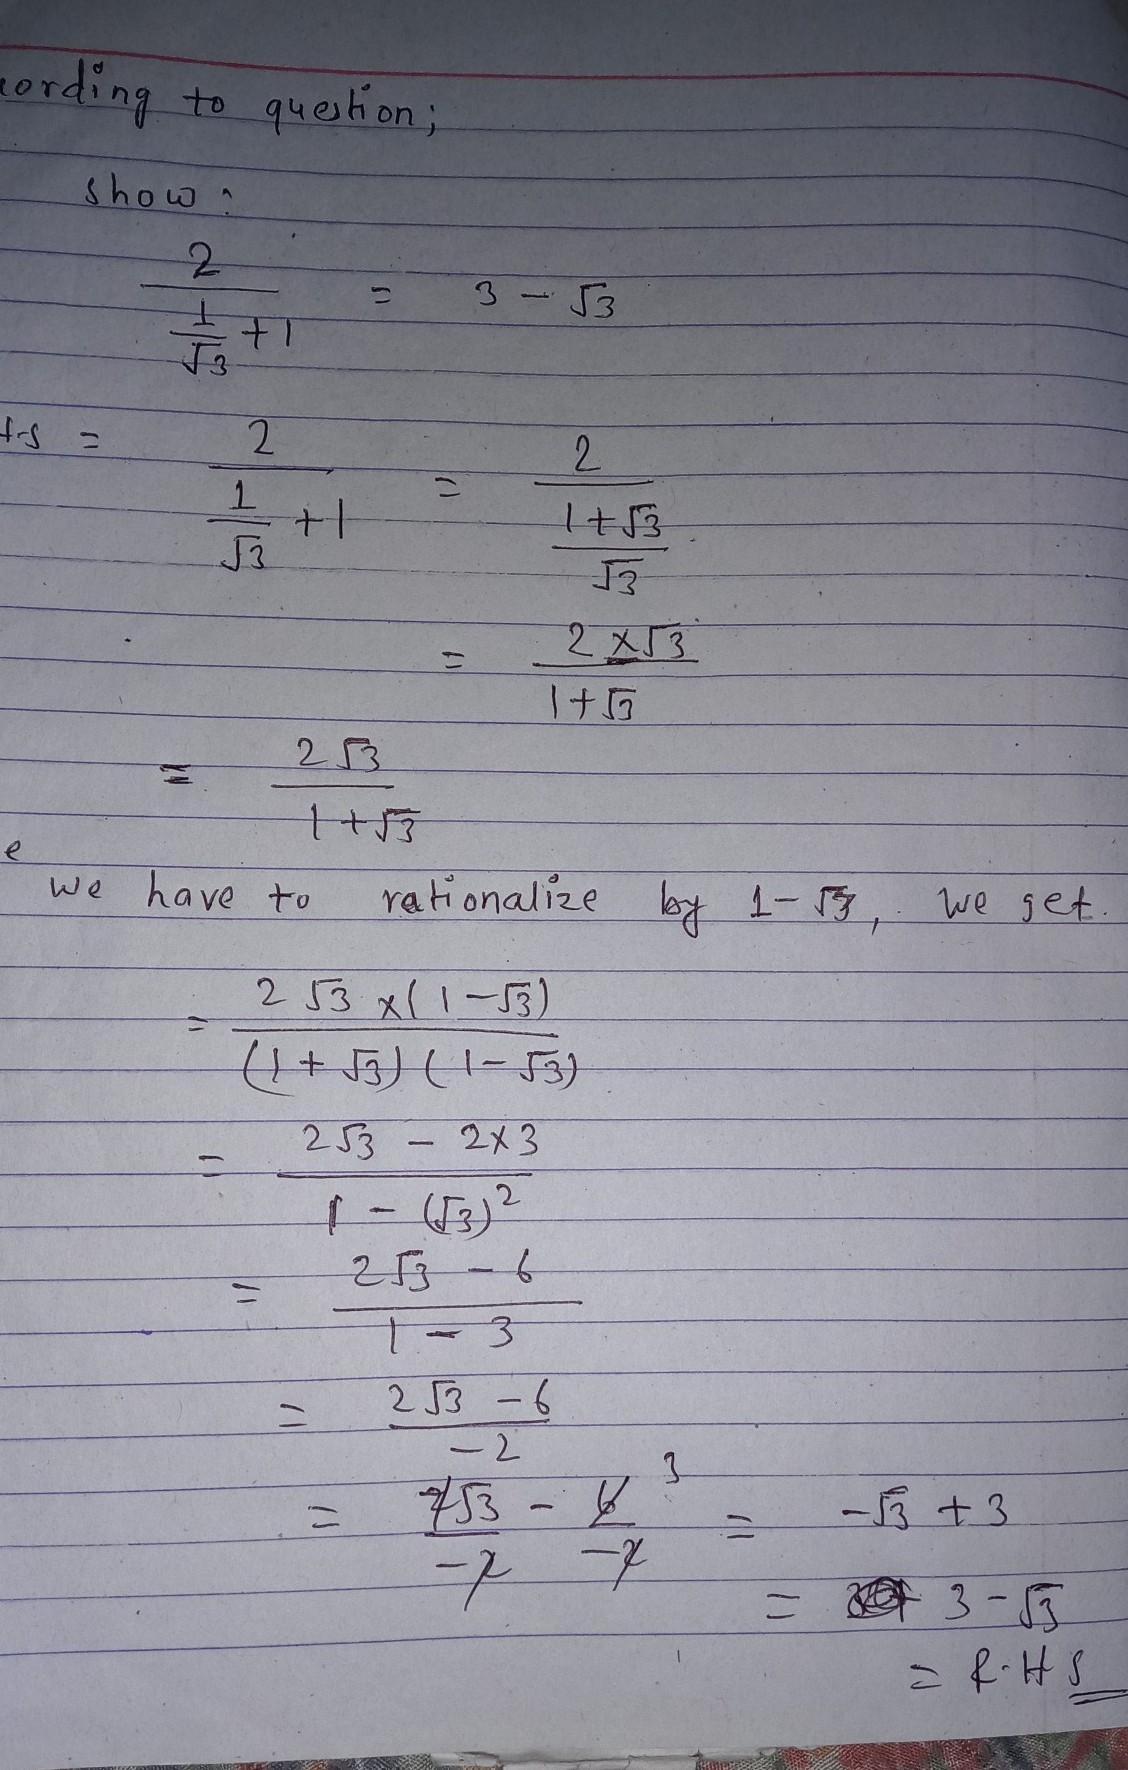 cording to question;
show:
2 / (1/√3 + 1) = 3 - √3
H-S = 2 / (1/√3 + 1) = 2 / ((1+√3)/√3)
= (2 × √3) / (1+√3)
= 2√3 / (1+√3)
e
we have to rationalize by 1-√3, we get.
= (2√3 × (1-√3)) / ((1+√3)(1-√3))
= (2√3 - 2×3) / (1 - (√3)²)
= (2√3 - 6) / (1 - 3)
= (2√3 - 6) / -2
= 2√3/-2 - 6/-2 3 = -√3 + 3
= 3 - √3
= R.H S